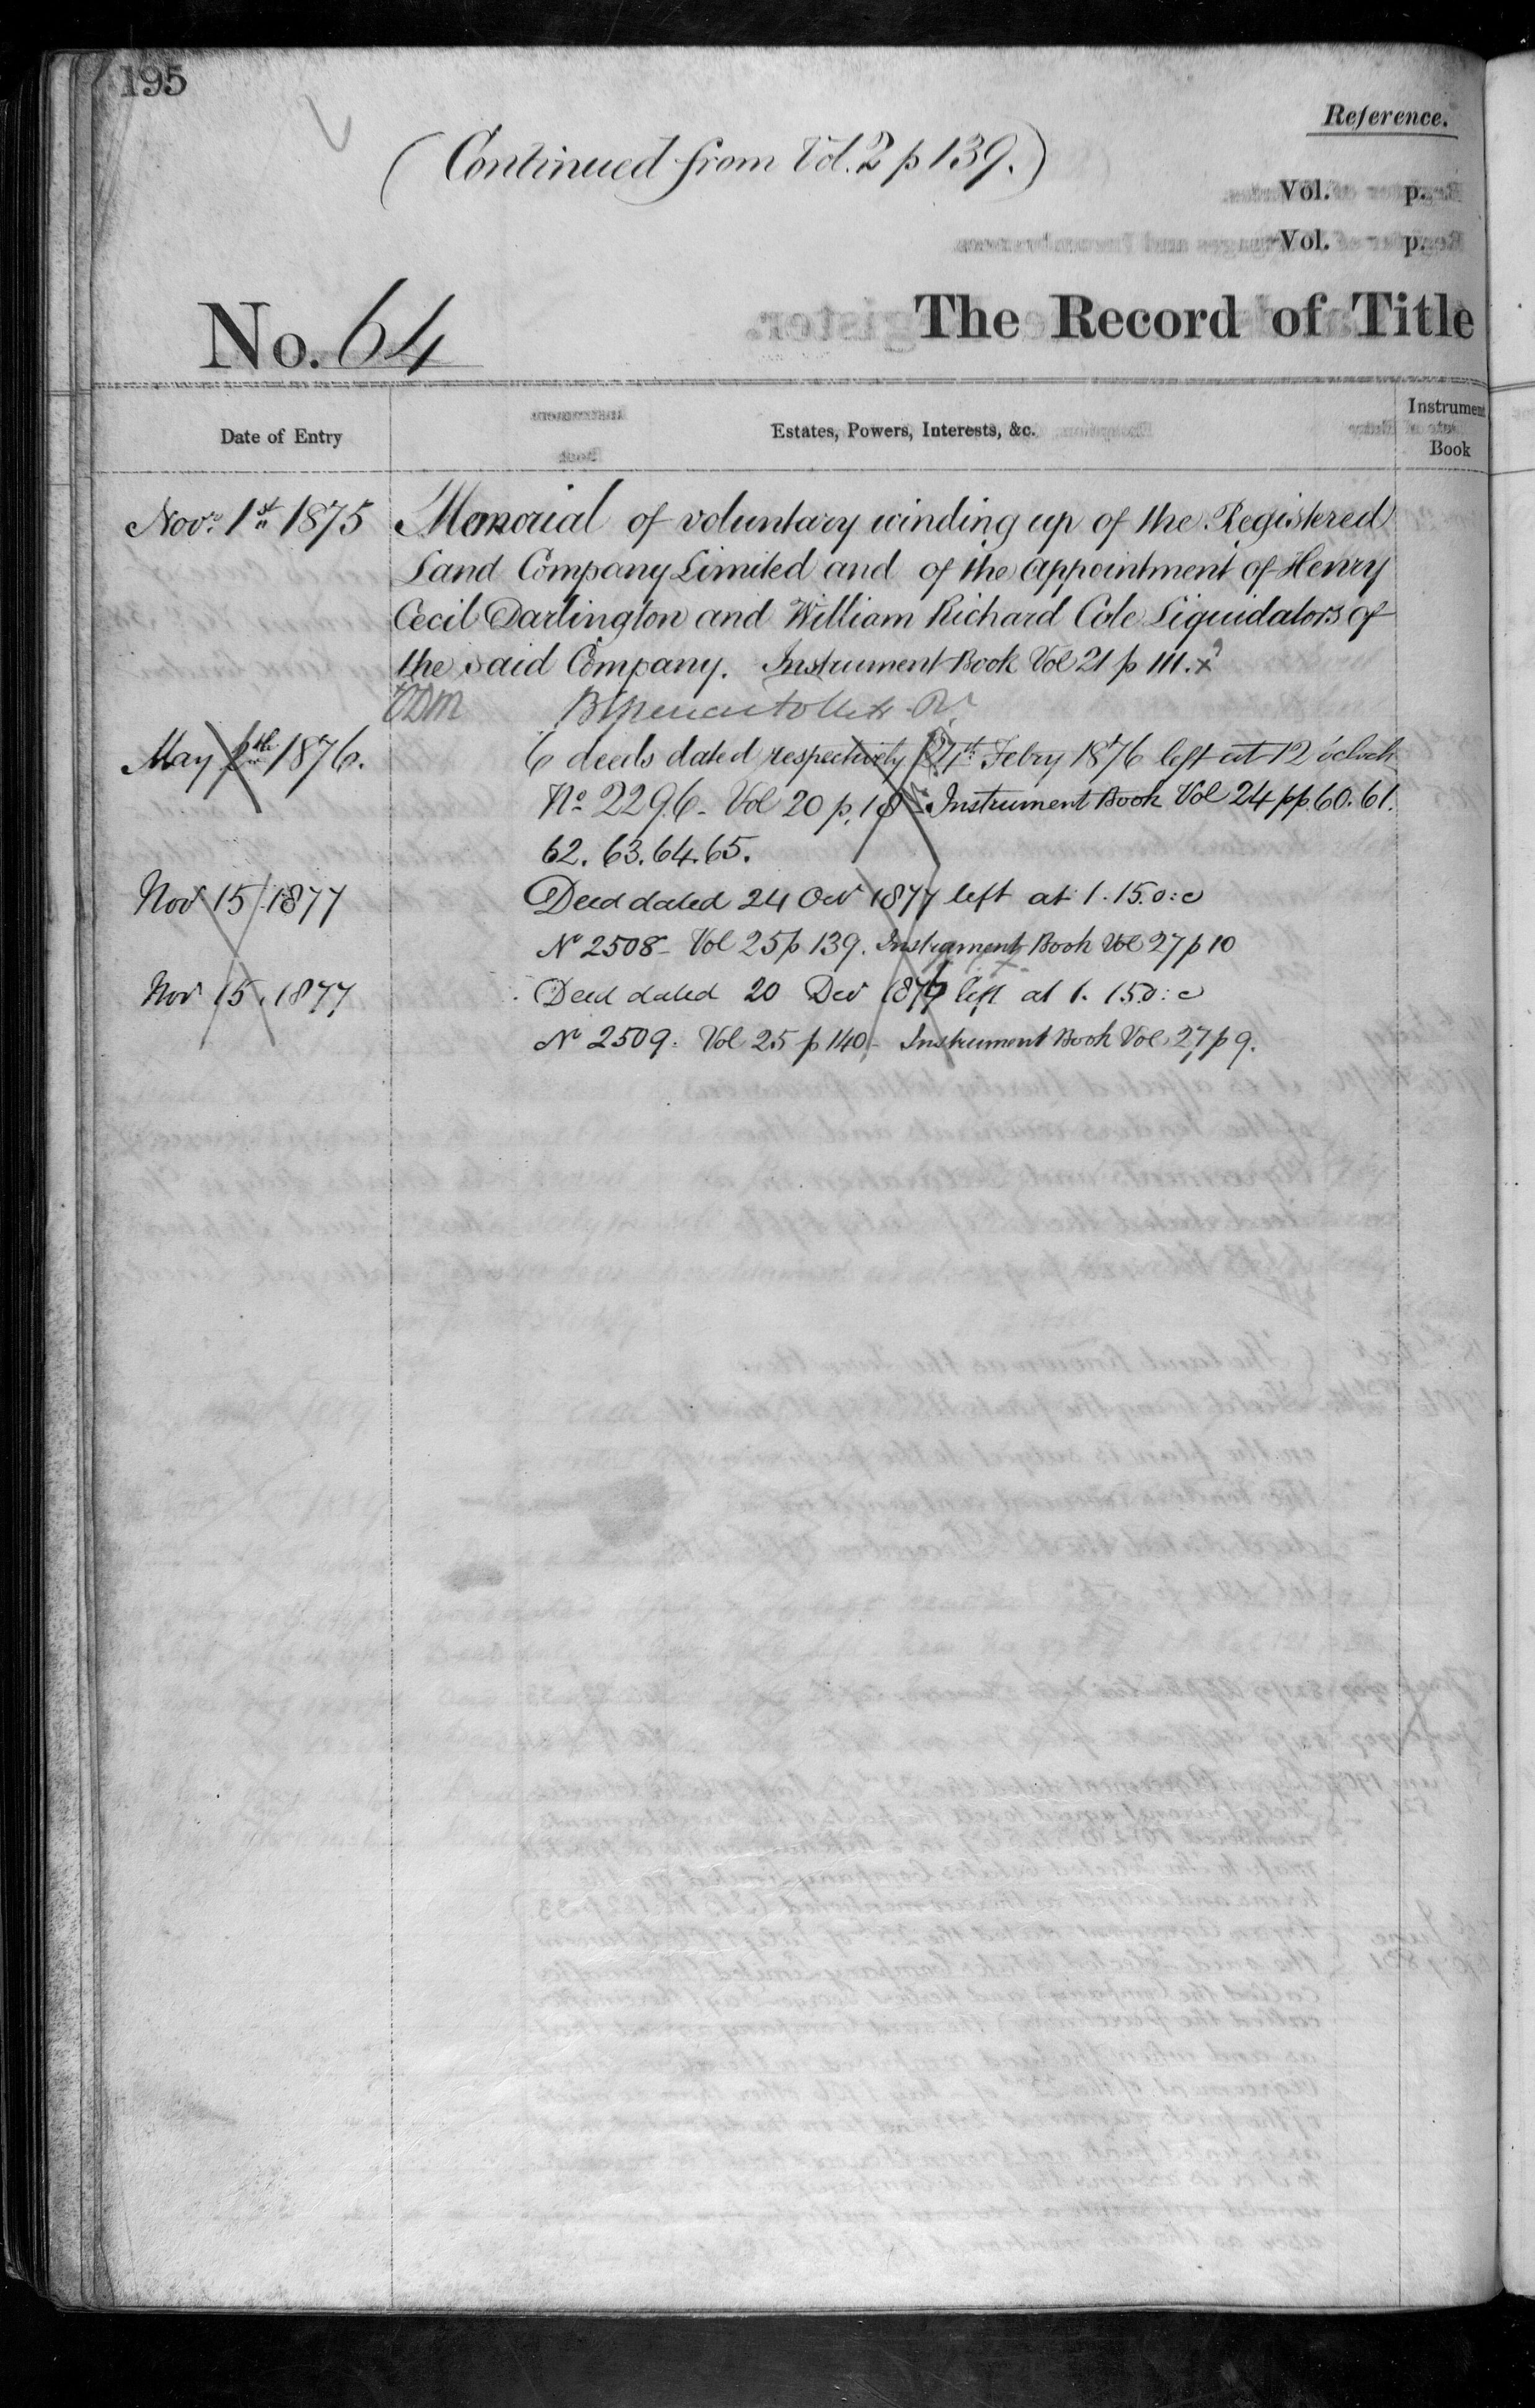 195
Reference.
(Continued from Vol. 2 p 139.)
Vol. p.
Vol. p.
No. 64
The Record of Title
Date of Entry
Estates, Powers, Interests, &c.
Instrument
Book
Novr. 1st 1875 Memorial of voluntary winding up of the Registered
Land Company Limited and of the appointment of Henry
Cecil Darlington and William Richard Cole Liquidators of
the said Company. Instrument Book Vol 21 p 111.
May 1876. 6 deeds dated respectively Febry 1876 left at 12 o'clock
No 2296 - Vol 20 p. 18 - Instrument Book Vol 24 pp. 60. 61.
62. 63. 64. 65.
Nov 15 1877 Deed dated 24 Oct 1877 left at 1. 15. o:c
No 2508 - Vol 25 p 139. Instrument Book Vol 27 p 10
Nov 15. 1877 Deed dated 20 Dec left at 1. 15. o:c
No 2509. Vol 25 p 140 - Instrument Book Vol 27 p 9.